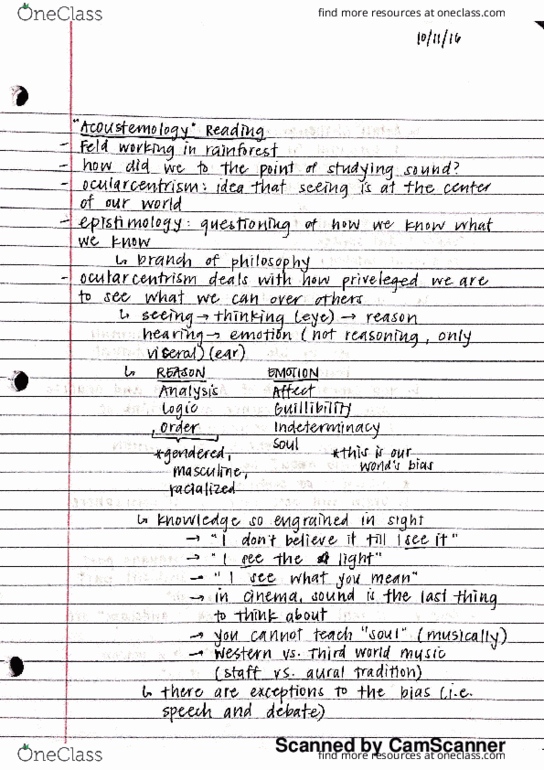 OneClass
find more resources at oneclass.com
10/11/16
"Acoustemology" Reading
- Feld working in rainforest
- how did we to the point of studying sound?
- ocularcentrism: idea that seeing is at the center
of our world
- epistimology: questioning of how we know what
we know
↳ branch of philosophy
- ocularcentrism deals with how priveleged we are
to see what we can over others
↳ seeing → thinking (eye) → reason
hearing → emotion (not reasoning, only
visceral) (ear)
↳ REASON EMOTION
Analysis Affect
Logic Guillibility
Order Indeterminacy
Soul
*gendered, *this is our
masculine, world's bias
racialized
↳ knowledge so engrained in sight
→ "I don't believe it till I see it"
→ "I see the light"
→ "I see what you mean"
→ in cinema, sound is the last thing
to think about
→ you cannot teach "soul" (musically)
→ Western vs. Third World music
(staff vs. aural tradition)
↳ there are exceptions to the bias (i.e.
speech and debate)
Scanned by CamScanner
OneClass
find more resources at oneclass.com